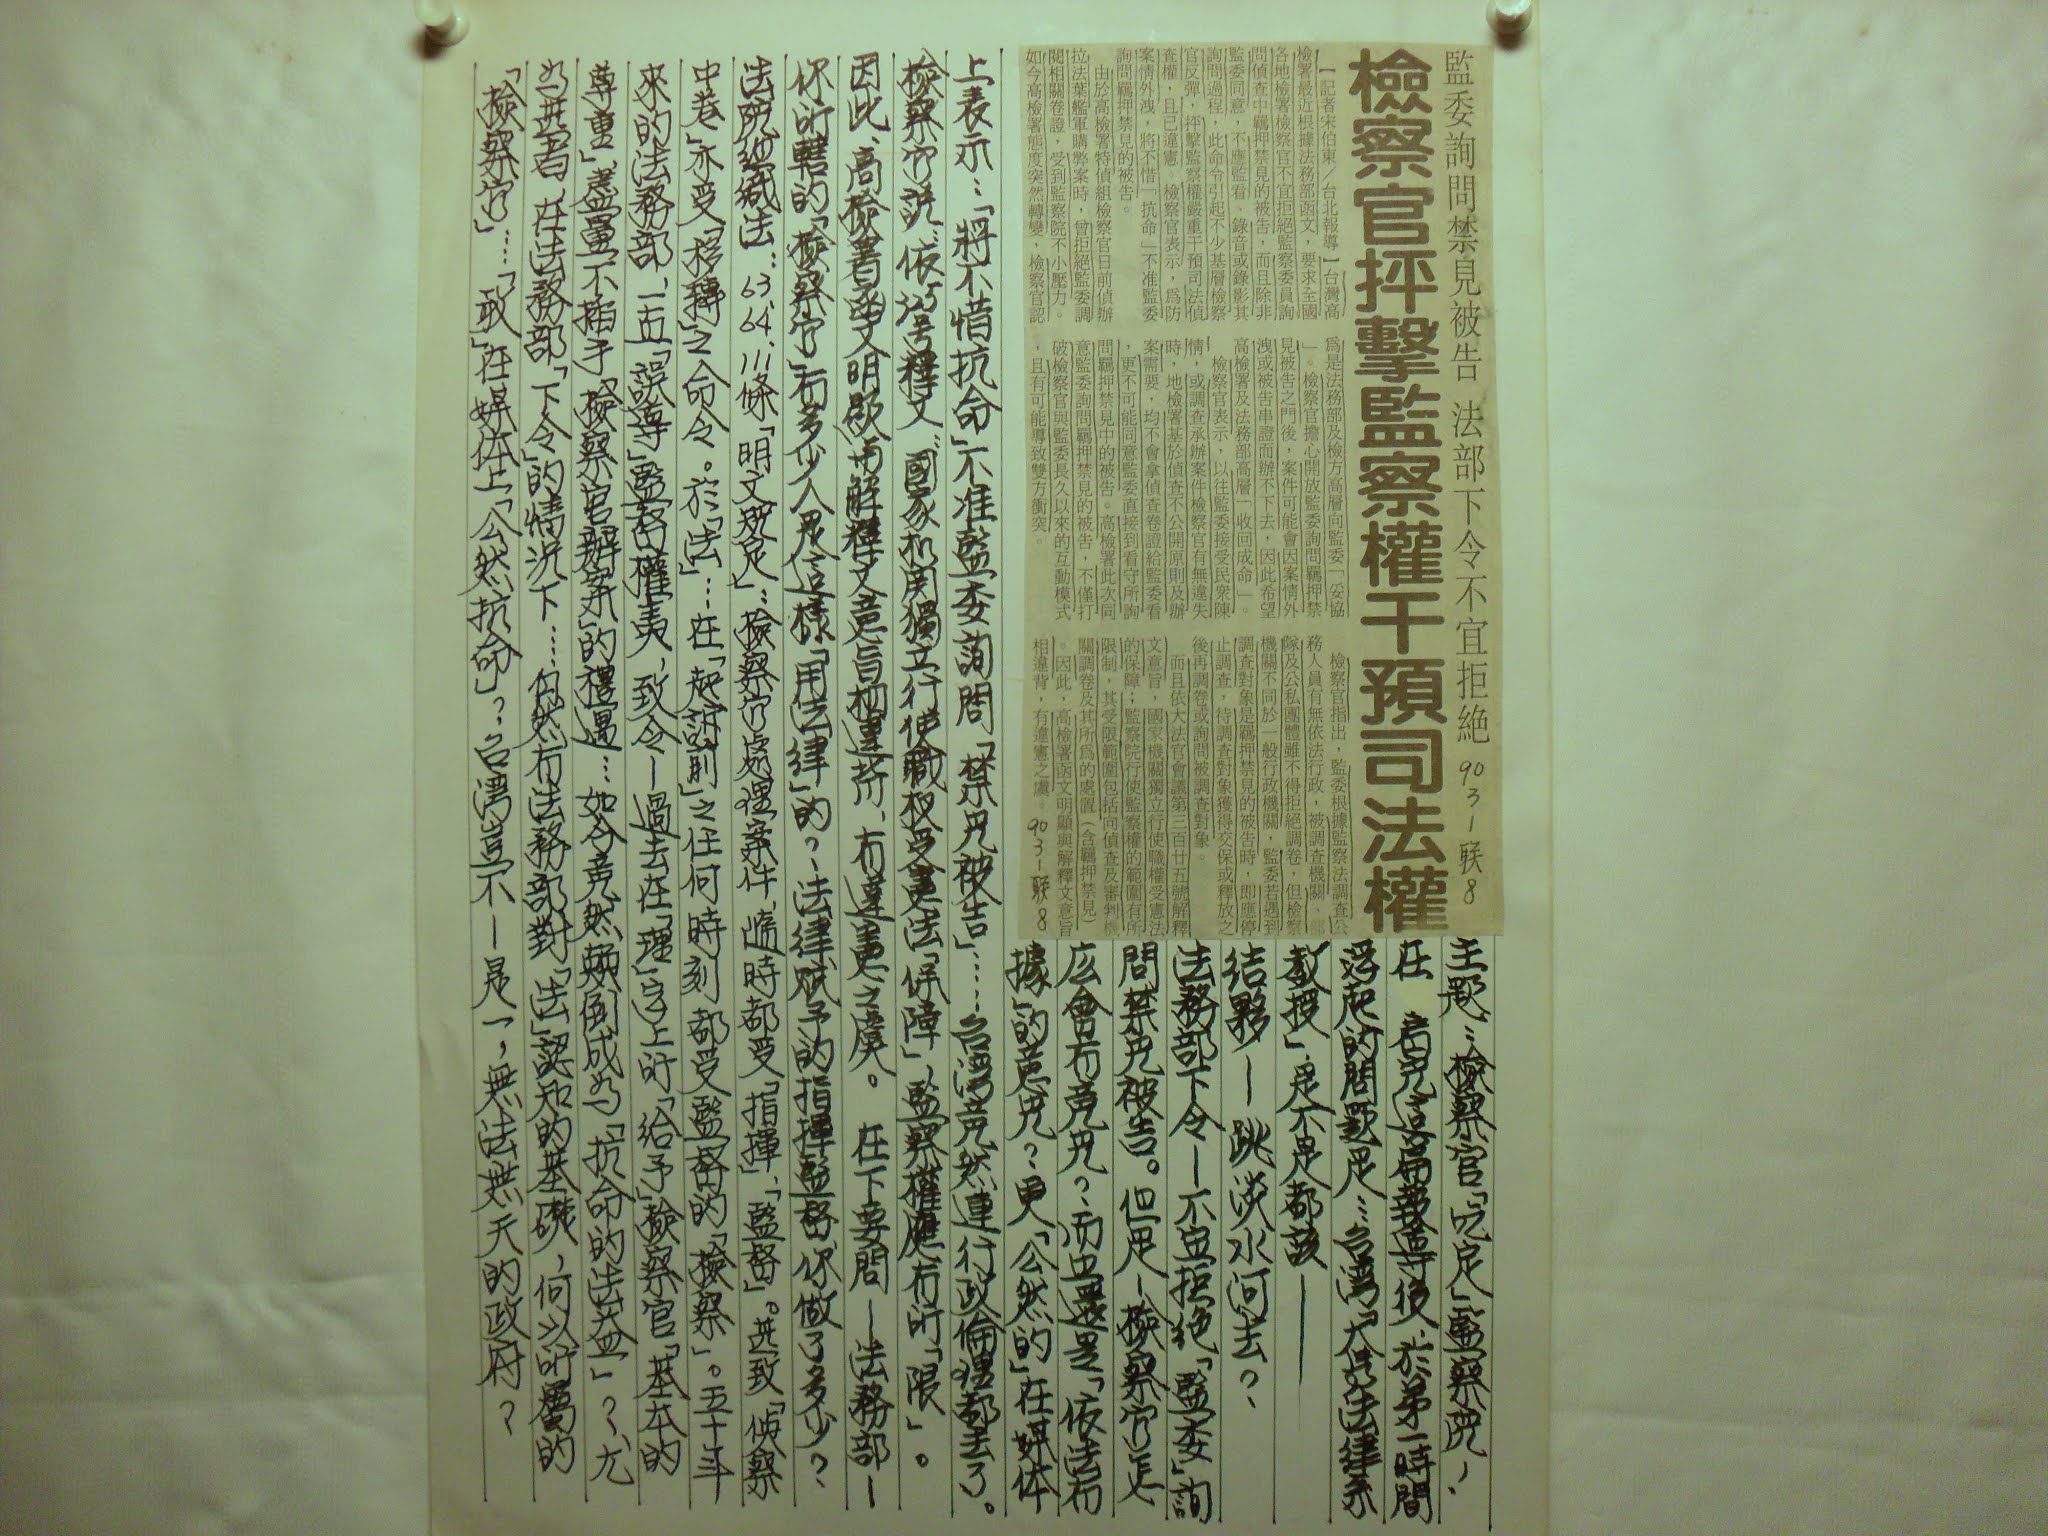 監委詢問禁見被告 法部下令不宜拒絕 90 3 1 联 8
檢察官抨擊監察權干預司法權
【記者宋伯東／台北報導】台灣高
檢署最近根據法務部函文，要求全國
各地檢署檢察官不宜拒絕監察委員詢
問偵查中羈押禁見的被告，而且除非
監委同意，不應監看、錄音或錄影其
詢問過程，此命令引起不少基層檢察
官反彈，抨擊監察權嚴重干預司法偵
查權，且已違憲。檢察官表示，為防
案情外洩，將不惜「抗命」不准監委
詢問羈押禁見的被告。
由於高檢署特偵組檢察官日前偵辦
拉法葉艦軍購弊案時，曾拒絕監委調
閱相關卷證，受到監察院不小壓力。
如今高檢署態度突然轉變，檢察官認
為是法務部及檢方高層向監委「妥協
」。檢察官擔心開放監委詢問羈押禁
見被告之門後，案件可能會因案情外
洩或被告串證而辦不下去，因此希望
高檢署及法務部高層「收回成命」。
檢察官表示，以往監委接受民眾陳
情，或調查承辦案件檢察官有無違失
時，地檢署基於偵查不公開原則及辦
案需要，均不會拿偵查卷證給監委看
，更不可能同意監委直接到看守所詢
問羈押禁見中的被告。高檢署此次同
意監委詢問羈押禁見的被告，不僅打
破檢察官與監委長久以來的互動模式
，且有可能導致雙方衝突。
檢察官指出，監委根據監察法調查公
務人員有無依法行政，被調查機關、部
隊及公私團體雖不得拒絕調卷，但檢察
機關不同於一般行政機關，監委若遇到
調查對象是羈押禁見的被告時，即應停
止調查，待調查對象獲得交保或釋放之
後再調卷或詢問被調查對象。
而且依大法官會議第三百廿五號解釋
文意旨，國家機關獨立行使職權受憲法
的保障；監察院行使監察權的範圍有所
限制，其受限範圍包括向偵查及審判機
關調卷及其所為的處置（含羈押禁見）
。因此，高檢署函文明顯與解釋文意旨
相違背，有違憲之虞。 90 3 1 联 8
主題：檢察官「咒定」監察院！
在 看完這篇報導後，於第一時間
浮起的問題是：台灣「大學法律系
教授」是不是都該——
結夥—跳淡水河去？
法務部下令—不宜拒絕「監委」詢
問禁見被告。但是—檢察官怎
広會有意見？而且還是「依法有
據」的意見？更「公然的」在媒体
上表示：「將不惜抗命」不准監委詢問「禁見被告」……台湾竟然連行政倫理都去了。
檢察官說：依325号釋文：國家机関獨立行使職权受憲法「保障」，監察權應有所「限」。
因此、高檢署函文明顯甪解釋文意旨相違背，有違憲之虞。 在下要問—法務部—
你所轄的「檢察官」有多少人是這樣「用法律」的？—法律賦予的指揮監督、你做了多少？、
法院組織法：63、64、111條「明文規定」：檢察官處理案件、隨時都受「指揮」、「監督」。甚致「偵察
中卷」亦受「移轉」之命令。於「法」…在「起訴前」之任何時刻都受監督的「檢察」。五十年
來的法務部、一直「誤導」監督權責，致令—過去在「理」字上所「給予」檢察官「基本的
尊重」盡量不插手「檢察官辦案」的禮遇…如今竟然顛倒成為「抗命的法益」？、尤
為甚者，在法務部「下令」的情況下……仍然有法務部對「法」認知的基礎，何以所屬的
「檢察官」…「敢」在媒体上「公然抗命」？，台湾豈不—是一，無法無天的政府？